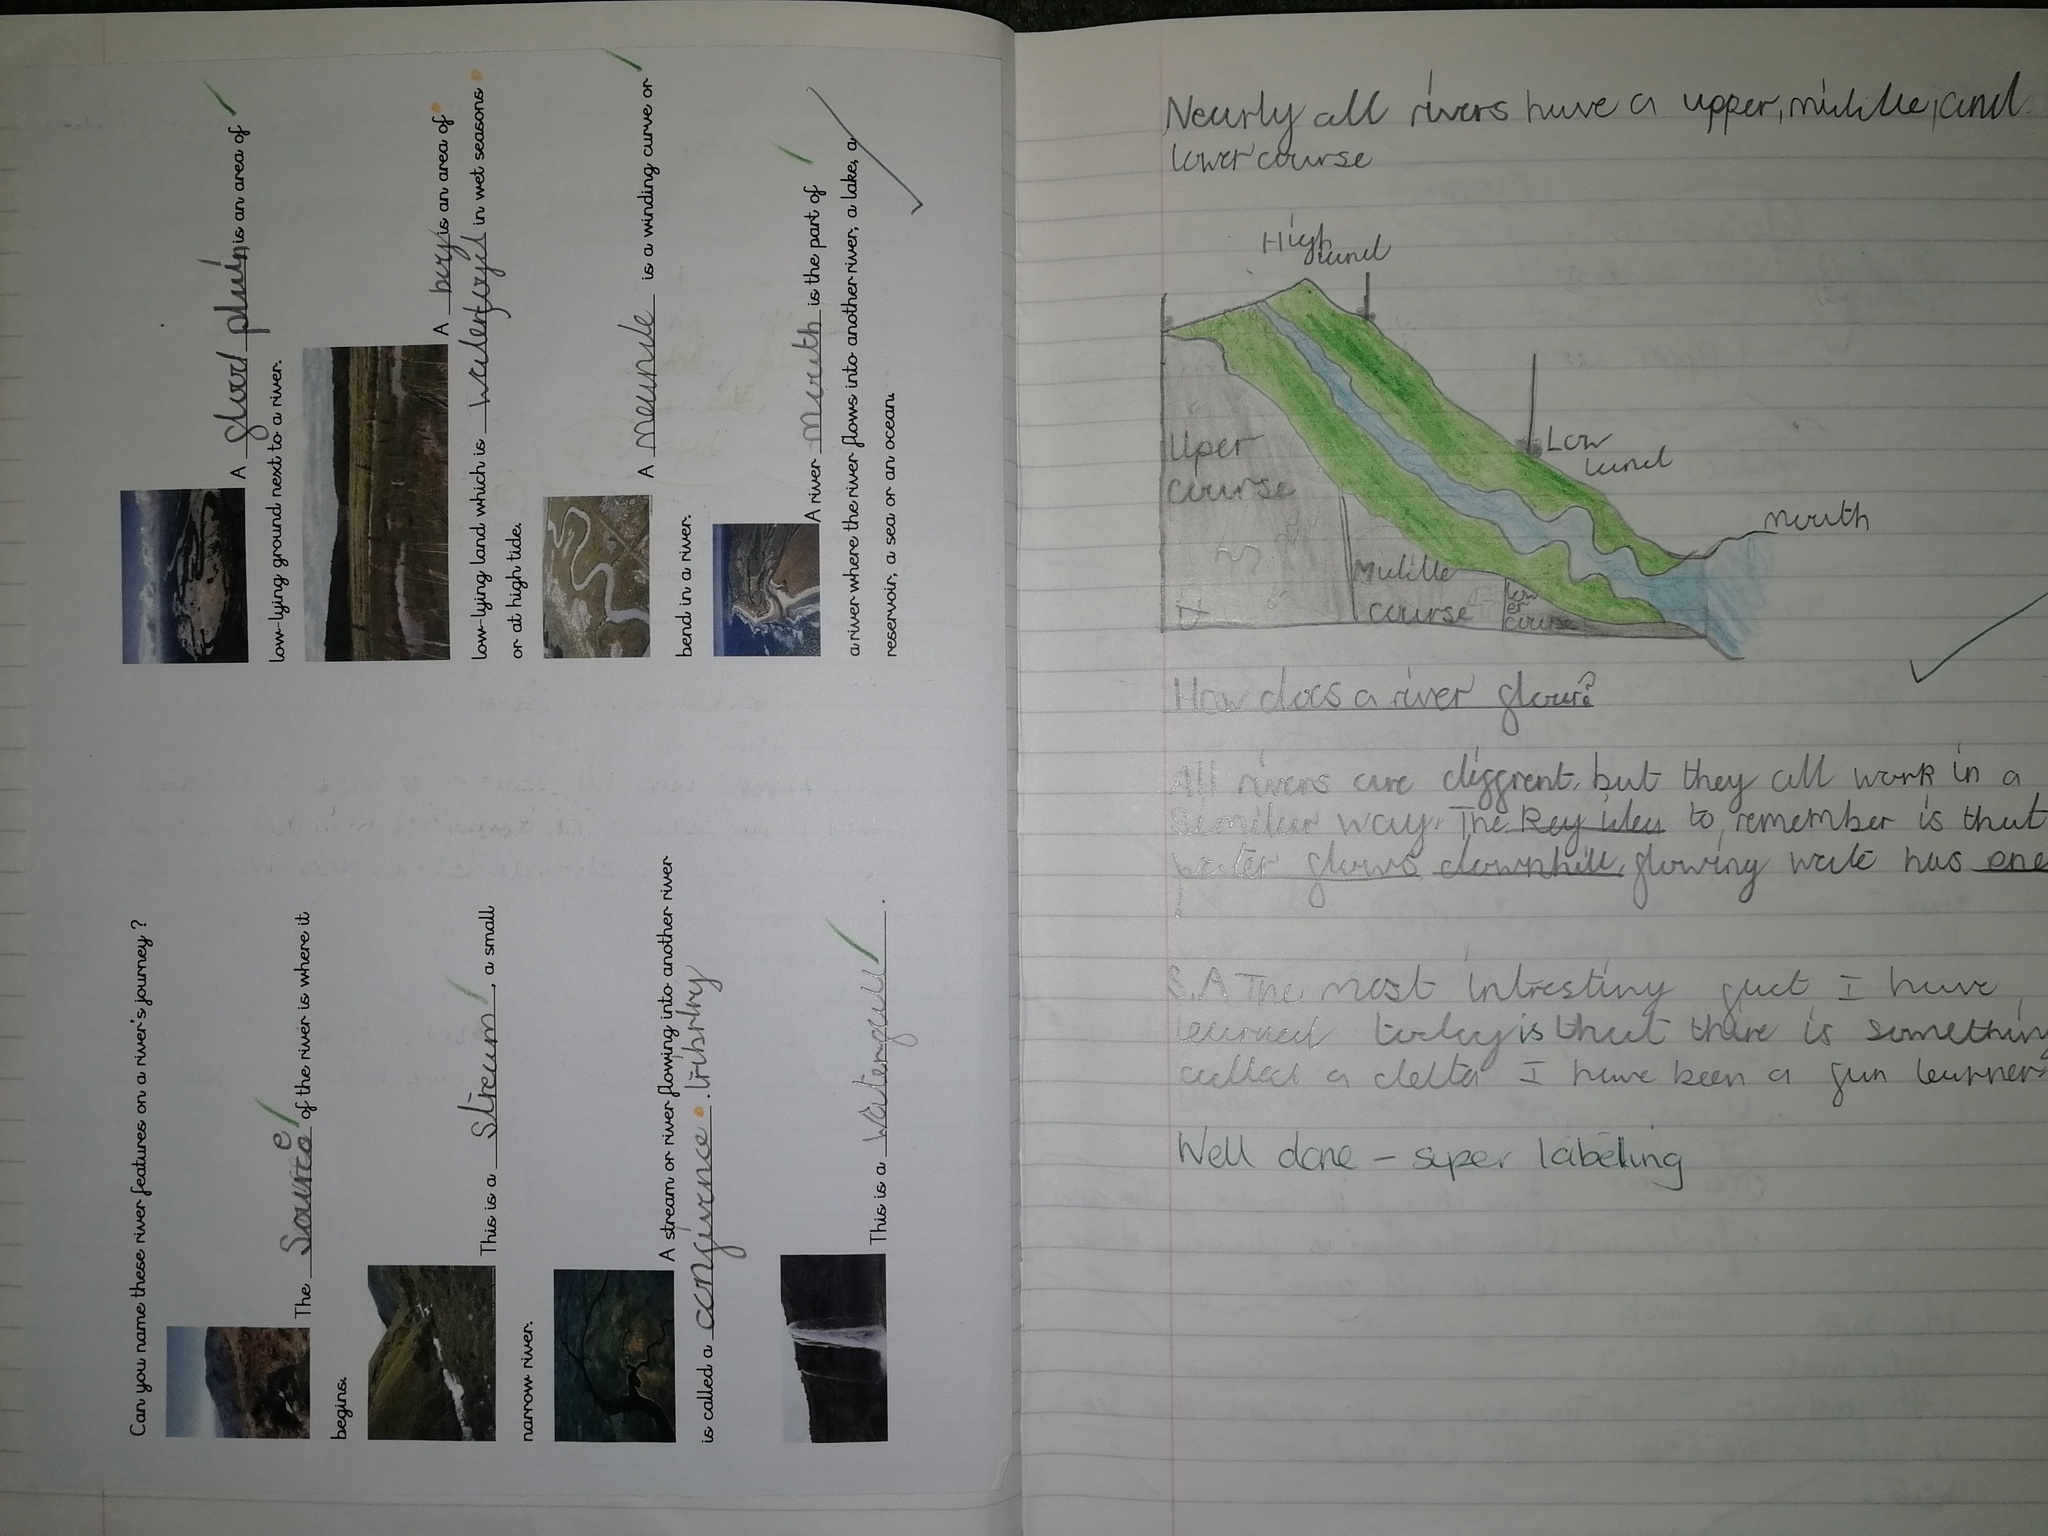 Can you name these river features on a river's journey?
The Source of the river is where it
begins.
This is a Stream, a small
narrow river.
A stream or river flowing into another river
is called a confirence. tribirtry
This is a Waterfall.
A flood plain is an area of
low-lying ground next to a river.
A is an area of
low-lying land which is in wet seasons
or at high tide.
A meande is a winding curve or
bend in a river.
A river mouth is the part of
a river where the river flows into another river, a lake, a
reservoir, a sea or an ocean.
Nearly all rivers have a upper, middle, and
lower course
High
land
Low
land
mouth
Uper
course
Middle
course
low
er
course
How does a river flow?
All rivers are diffrent, but they all work in a
similar way. The key idea to remember is that
water flows downhill, flowing wate has ene
S.A The most intresting fact I have
learned today is that there is something
called a delta I have been a fun learner
Well done - super labelling